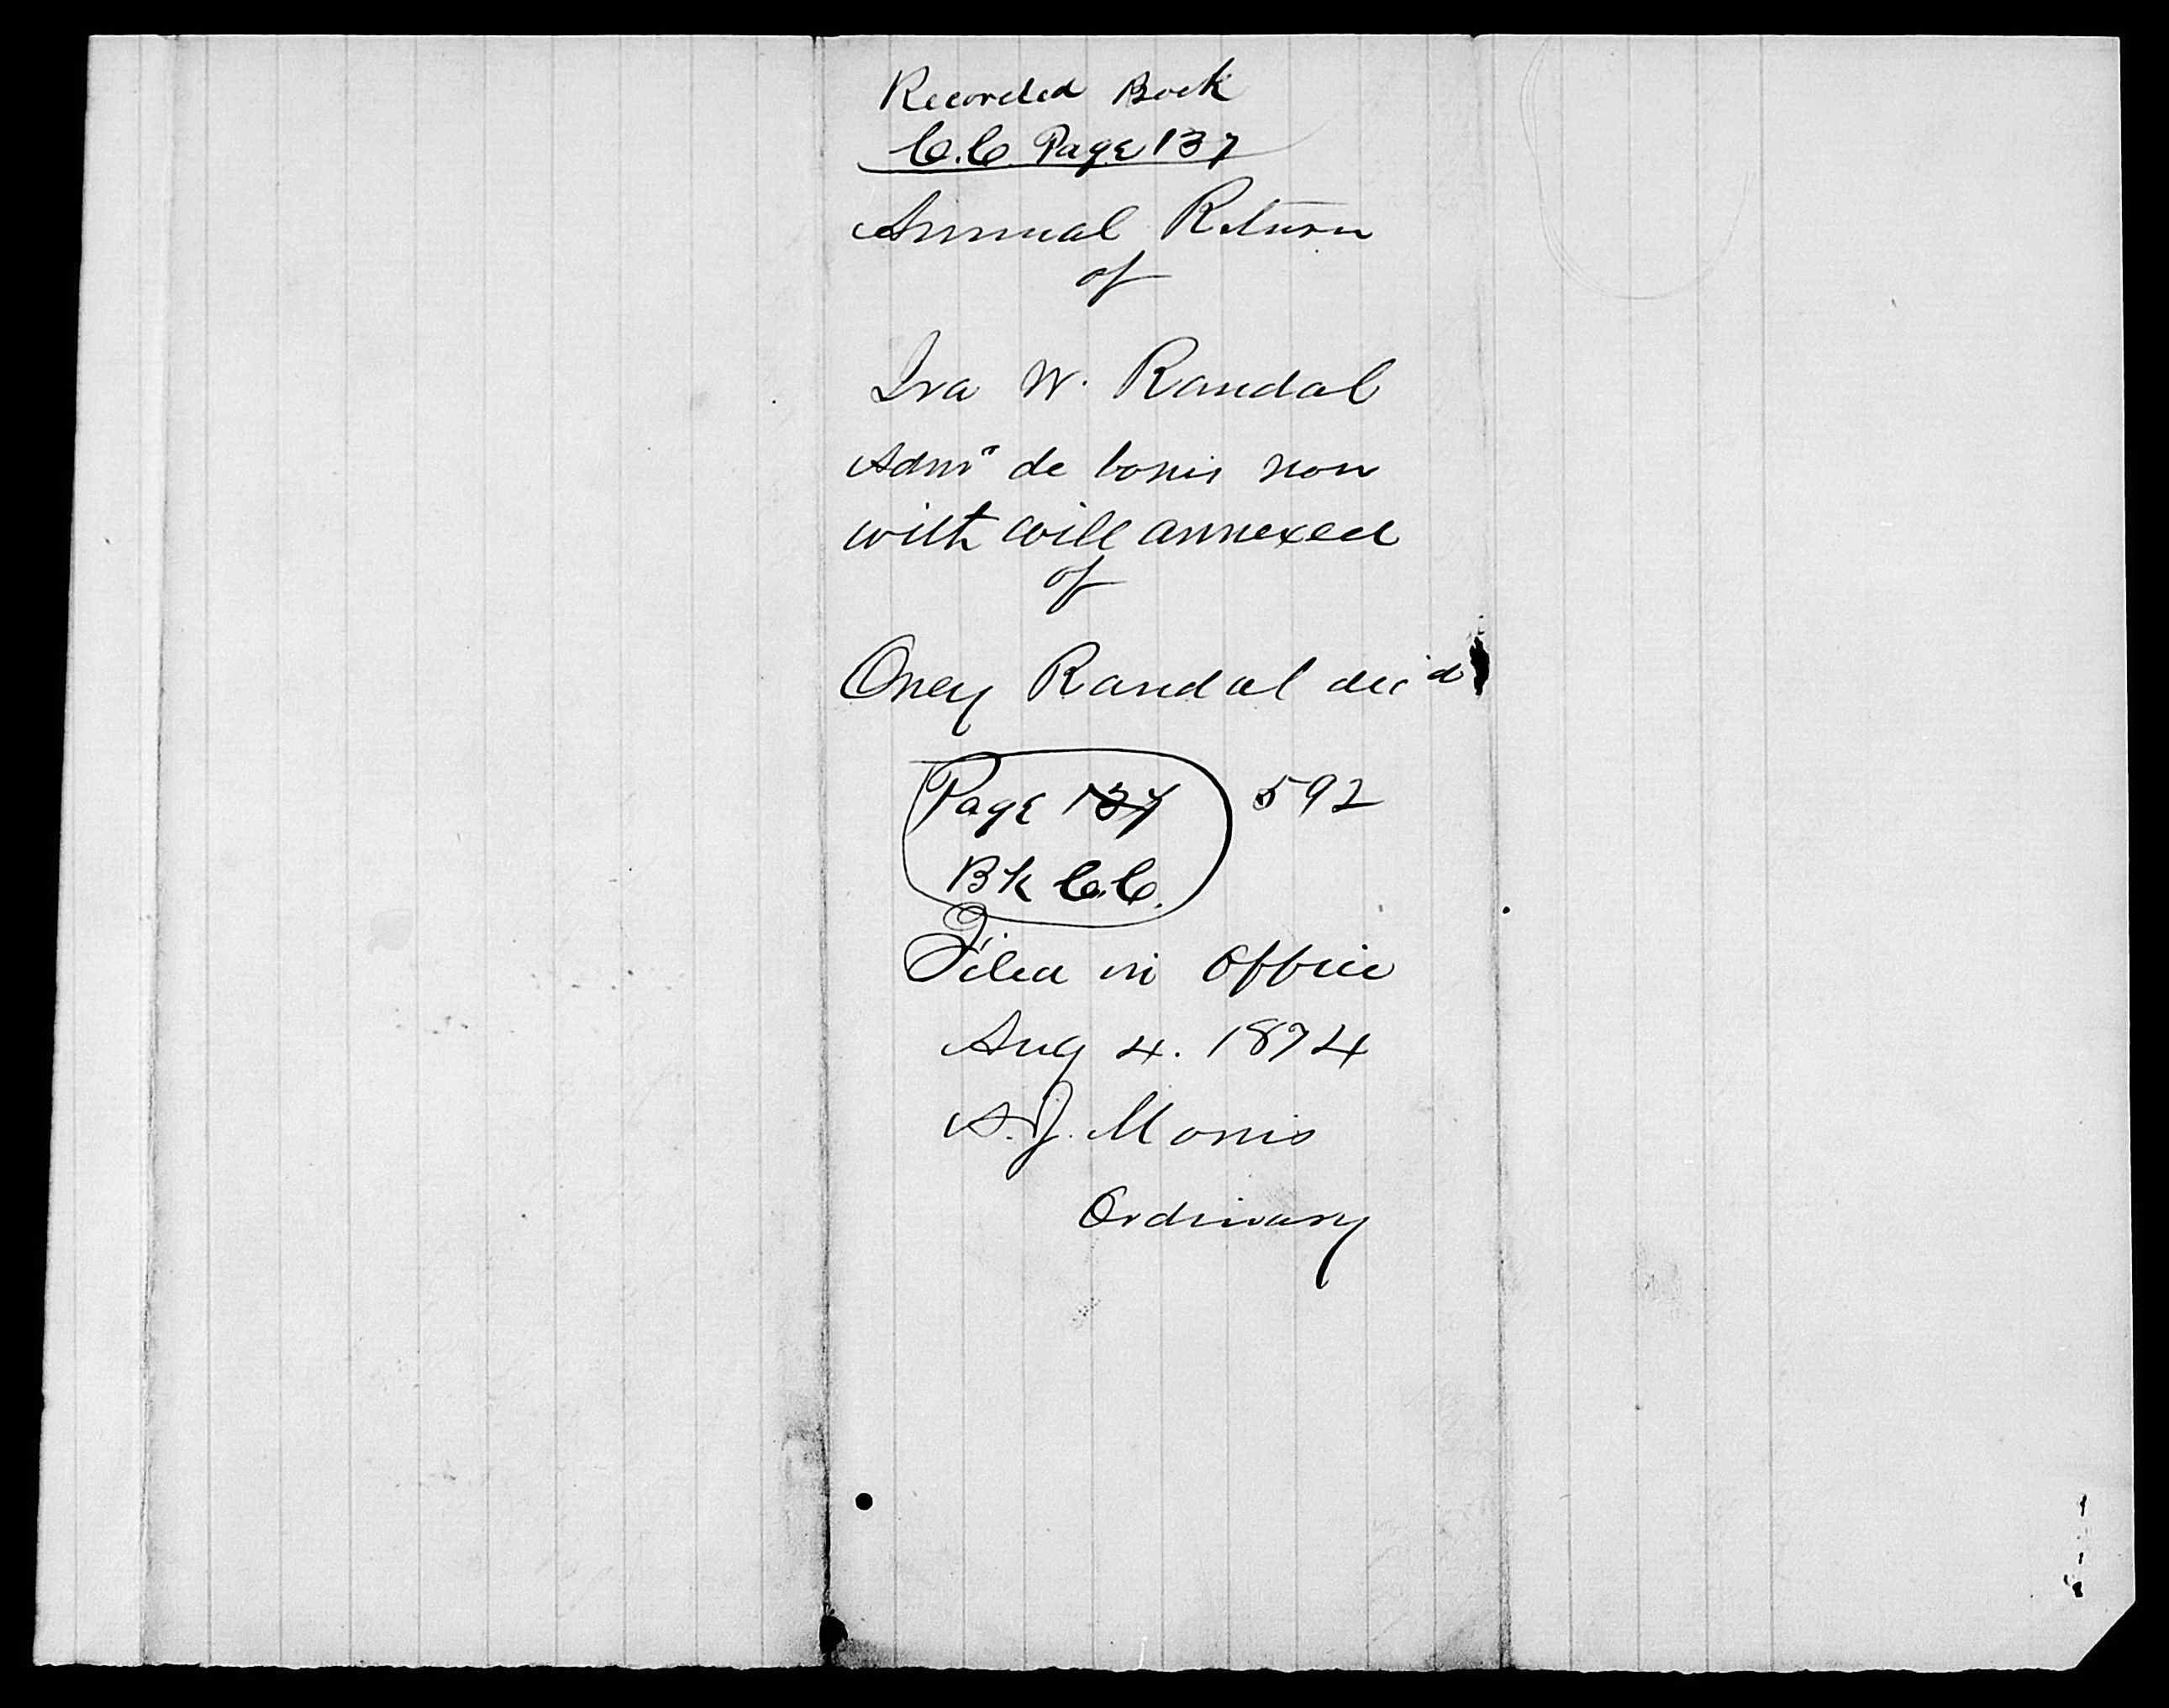 Recorded Book
C.C. Page 137
Annual Return
of
Ira W. Randal
Admr de bonis non
with will annexed
of
Oney Randal dec'd
Page 137 592
Bk C.C.
Filed in Office
Aug 4. 1874
S. J. Morris
Ordinary